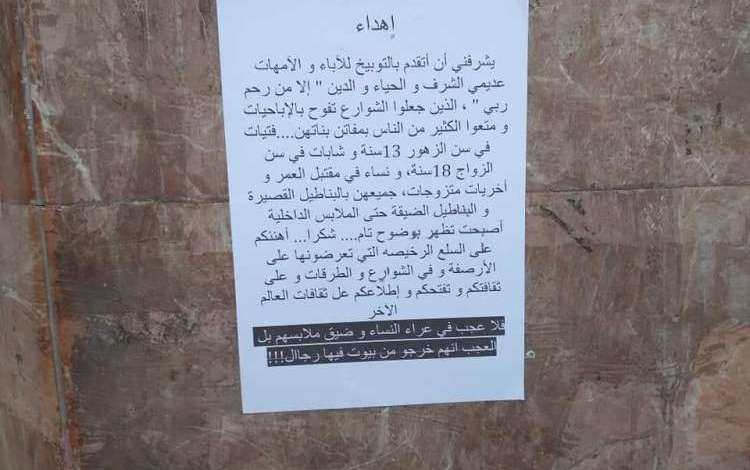 إهداء
يشرفني أن أتقدم بالتوبيخ للآباء و الأمهات
عديمي الشرف و الحياء و الدين " إلا من رحم
ربي " ، الذين جعلوا الشوارع تفوح بالإباحيات
و متعوا الكثير من الناس بمفاتن بناتهن....فتيات
في سن الزهور 13سنة و شابات في سن
الزواج 18سنة، و نساء في مقتبل العمر و
أخريات متزوجات، جميعهن بالبناطيل القصيرة
و البناطيل الضيقة حتى الملابس الداخلية
أصبحت تظهر بوضوح تام.... شكرا... أهنئكم
على السلع الرخيصه التي تعرضونها على
الأرصفة و في الشوارع و الطرقات و على
ثقافتكم و تفتحكم و إطلاعكم عل ثقافات العالم
الآخر
فلا عجب في عراء النساء و ضيق ملابسهم بل
العجب انهم خرجو من بيوت فيها رجاال!!!